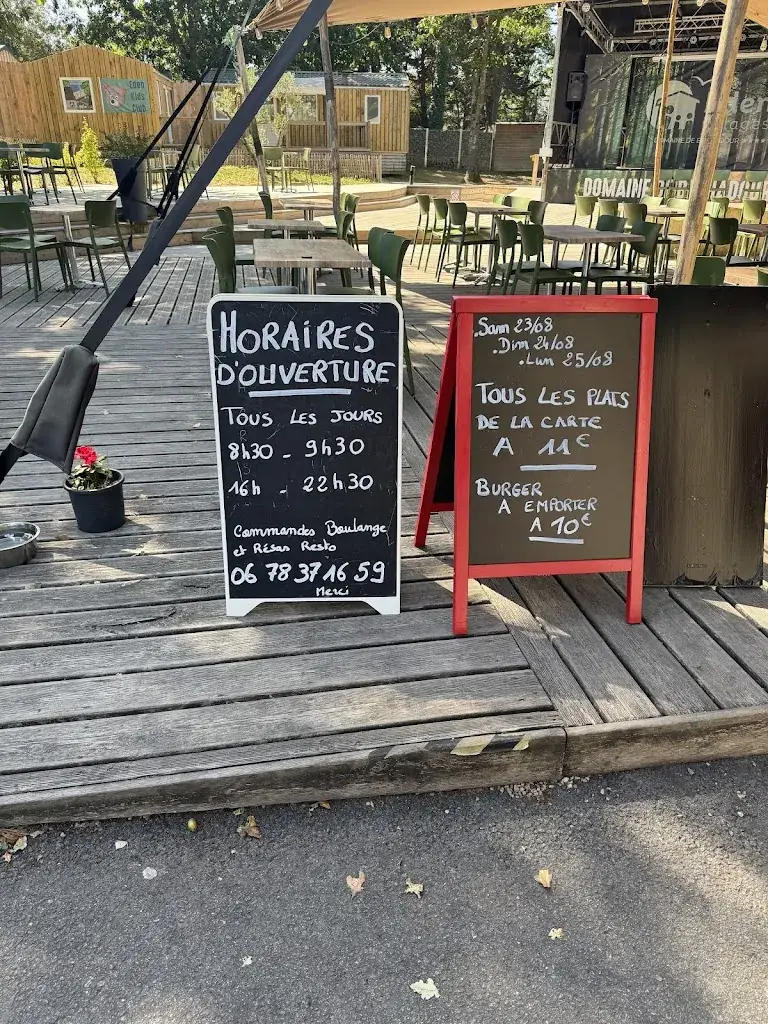 HORAIRES
D'OUVERTURE
TOUS LES JOURS
8h30 - 9h30
16h - 22h30
Commandes Boulange
et Résas Resto
06 78 37 16 59
Merci
.Sam 23/08
.Dim 24/08
.Lun 25/08
TOUS LES PLATS
DE LA CARTE
A 11€
BURGER
A EMPORTER
A 10€
KIDS
CLUB
DOMAINE